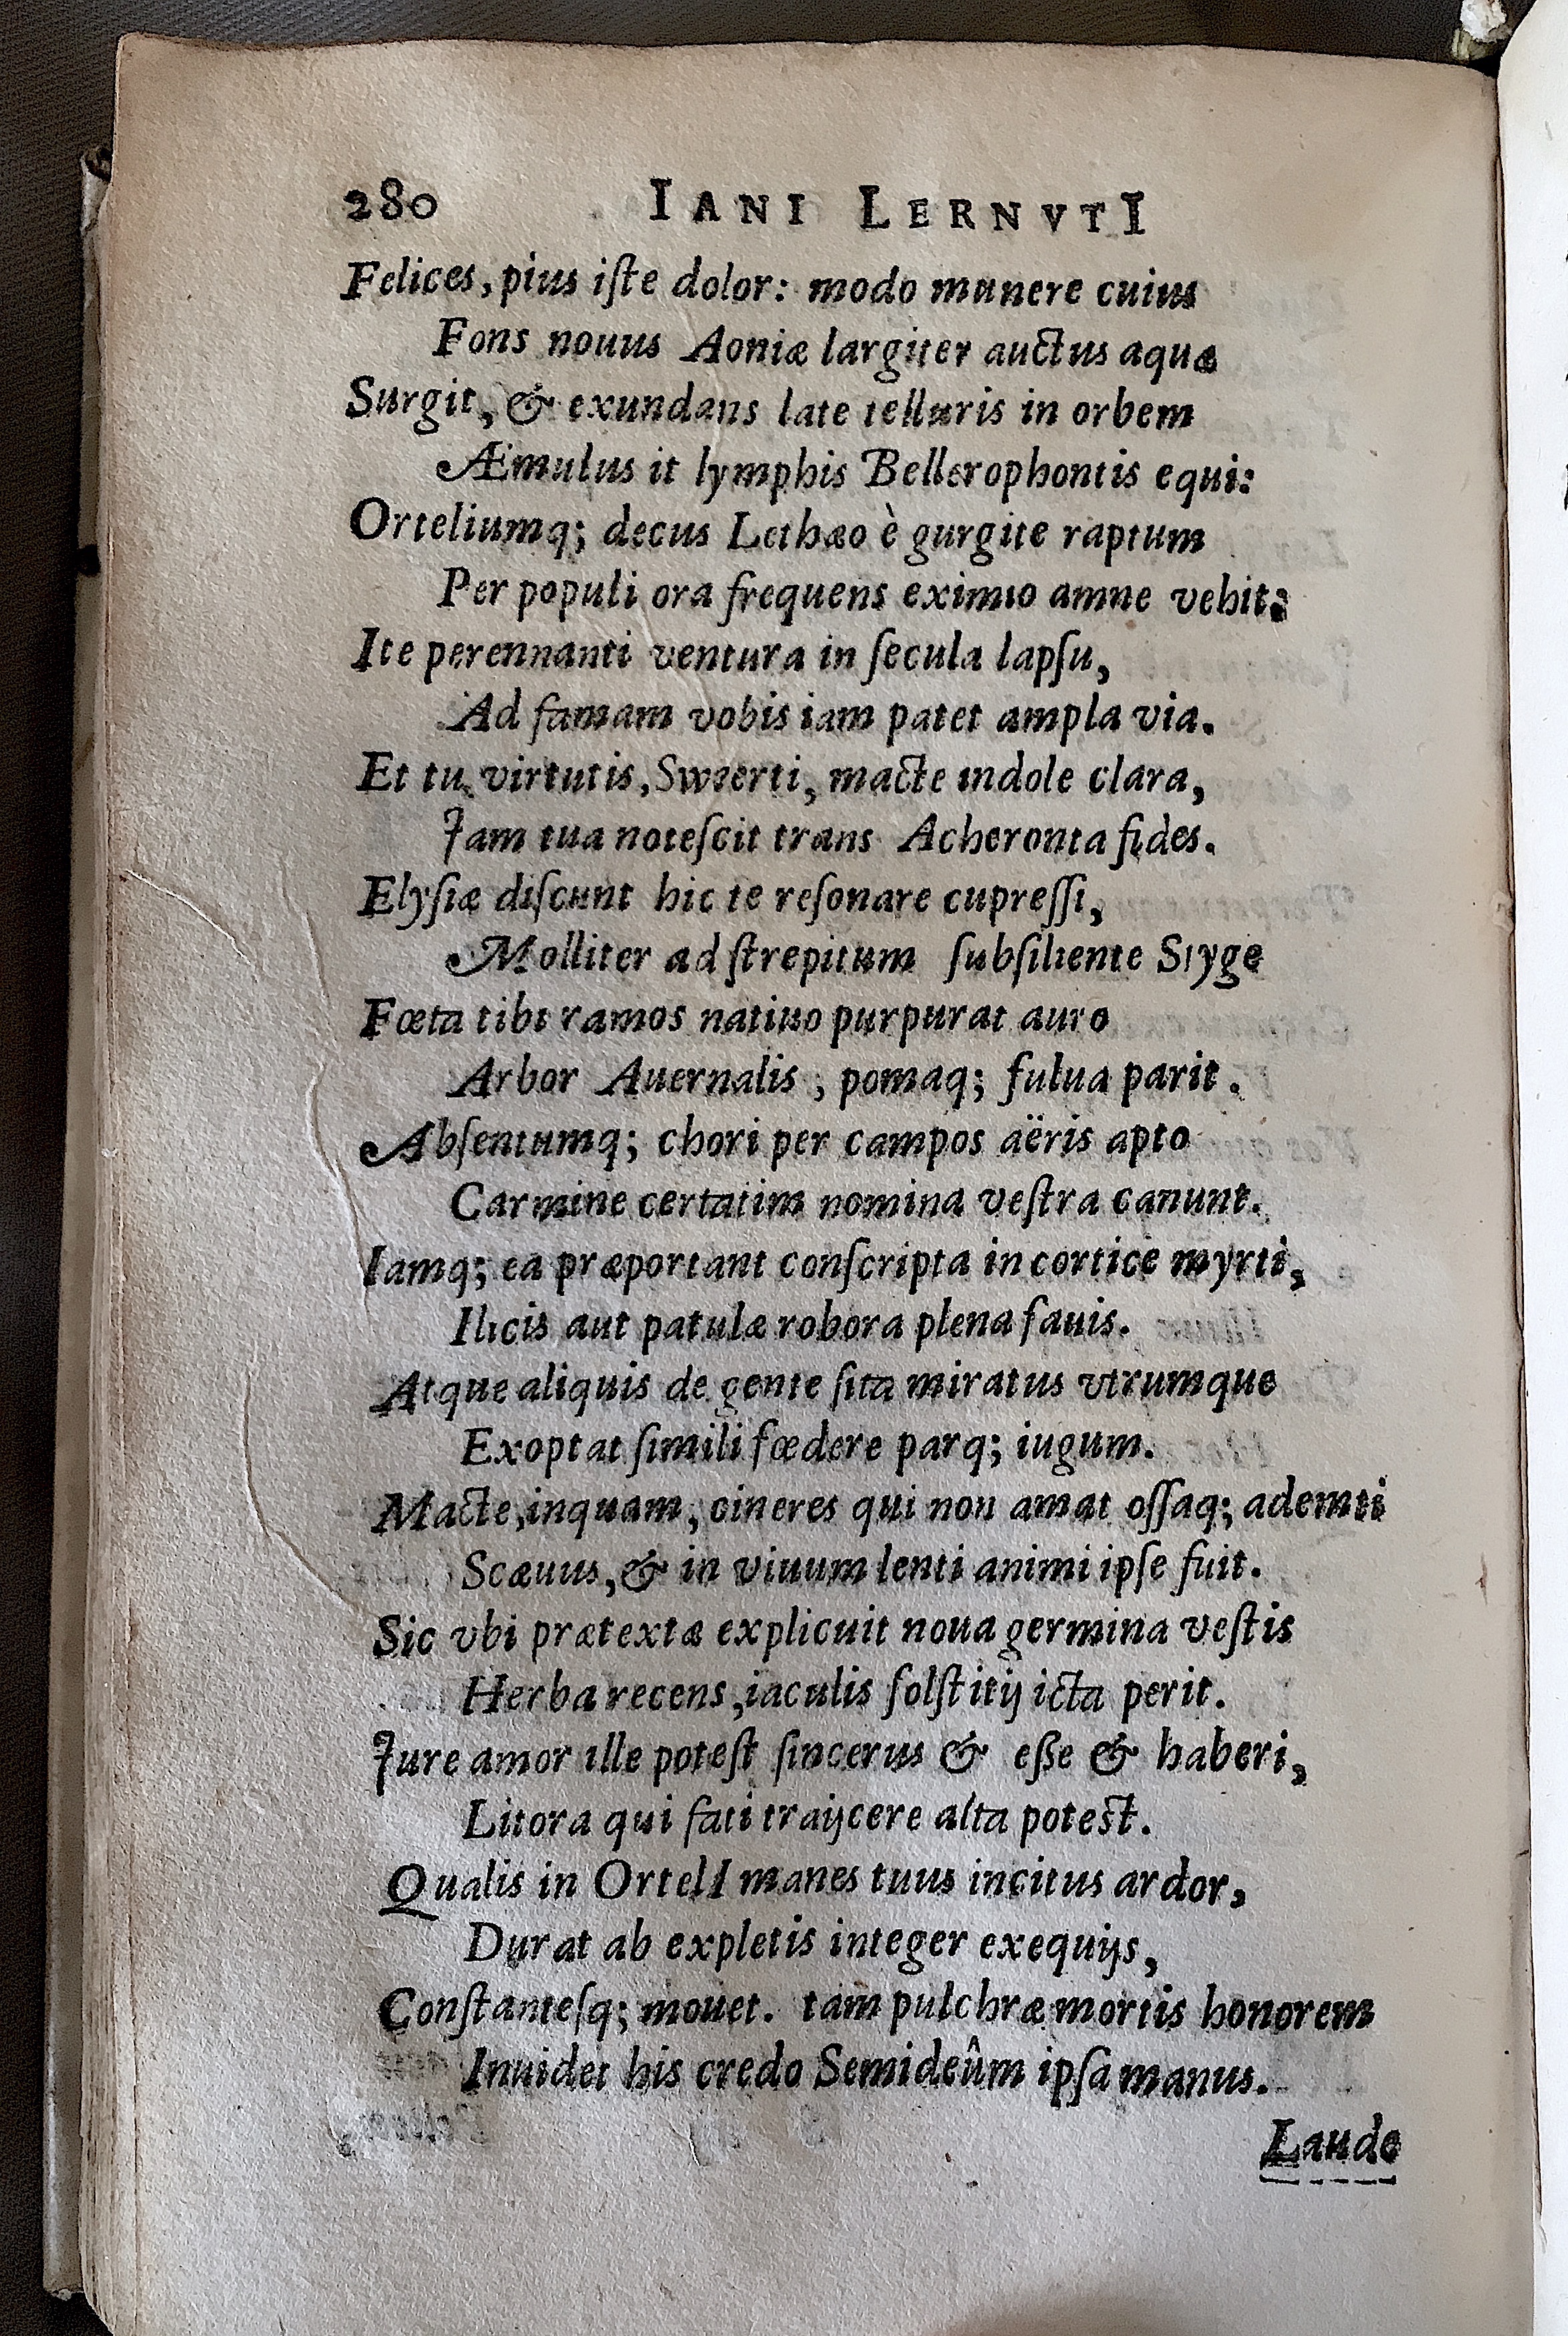 280 IANI LERNVTI
Felices, pius iſte dolor: modo munere cuius
Fons nouus Aoniæ largiter auctus aquæ
Surgit, & exundans late telluris in orbem
Æmulus it lymphis Bellerophontis equi:
Orteliumq; decus Lethæo è gurgite raptum
Per populi ora frequens eximio amne vehit:
Ite perennanti ventura in ſecula lapſu,
Ad famam vobis iam patet ampla via.
Et tu virtutis, Sweerti, macte indole clara,
Iam tua noteſcit trans Acheronta fides.
Elyſiæ diſcunt hic te reſonare cupreſſi,
Molliter ad ſtrepitum ſubſiliente Styge
Fœta tibi ramos natiuo purpurat auro
Arbor Auernalis, pomaq; fulua parit.
Abſentumq; chori per campos aëris apto
Carmine certatim nomina veſtra canunt.
Iamq; ea præportant conſcripta in cortice myrti,
Ilicis aut patulæ robora plena fauis.
Atque aliquis de gente ſita miratus vtrumque
Exoptat ſimili fœdere parq; iugum.
Macte, inquam, cineres qui non amat oſſaq; ademti
Scæuus, & in viuum lenti animi ipſe fuit.
Sic vbi prætextæ explicuit noua germina veſtis
Herba recens, iaculis ſolſtitij icta perit.
Iure amor ille poteſt ſincerus & eſse & haberi,
Litora qui fati traijcere alta potest.
Qualis in OrtelI manes tuus incitus ardor,
Durat ab expletis integer exequijs,
Conſtanteſq; mouet. tam pulchræ mortis honorem
Inuidet his credo Semideûm ipſa manus.
Laude